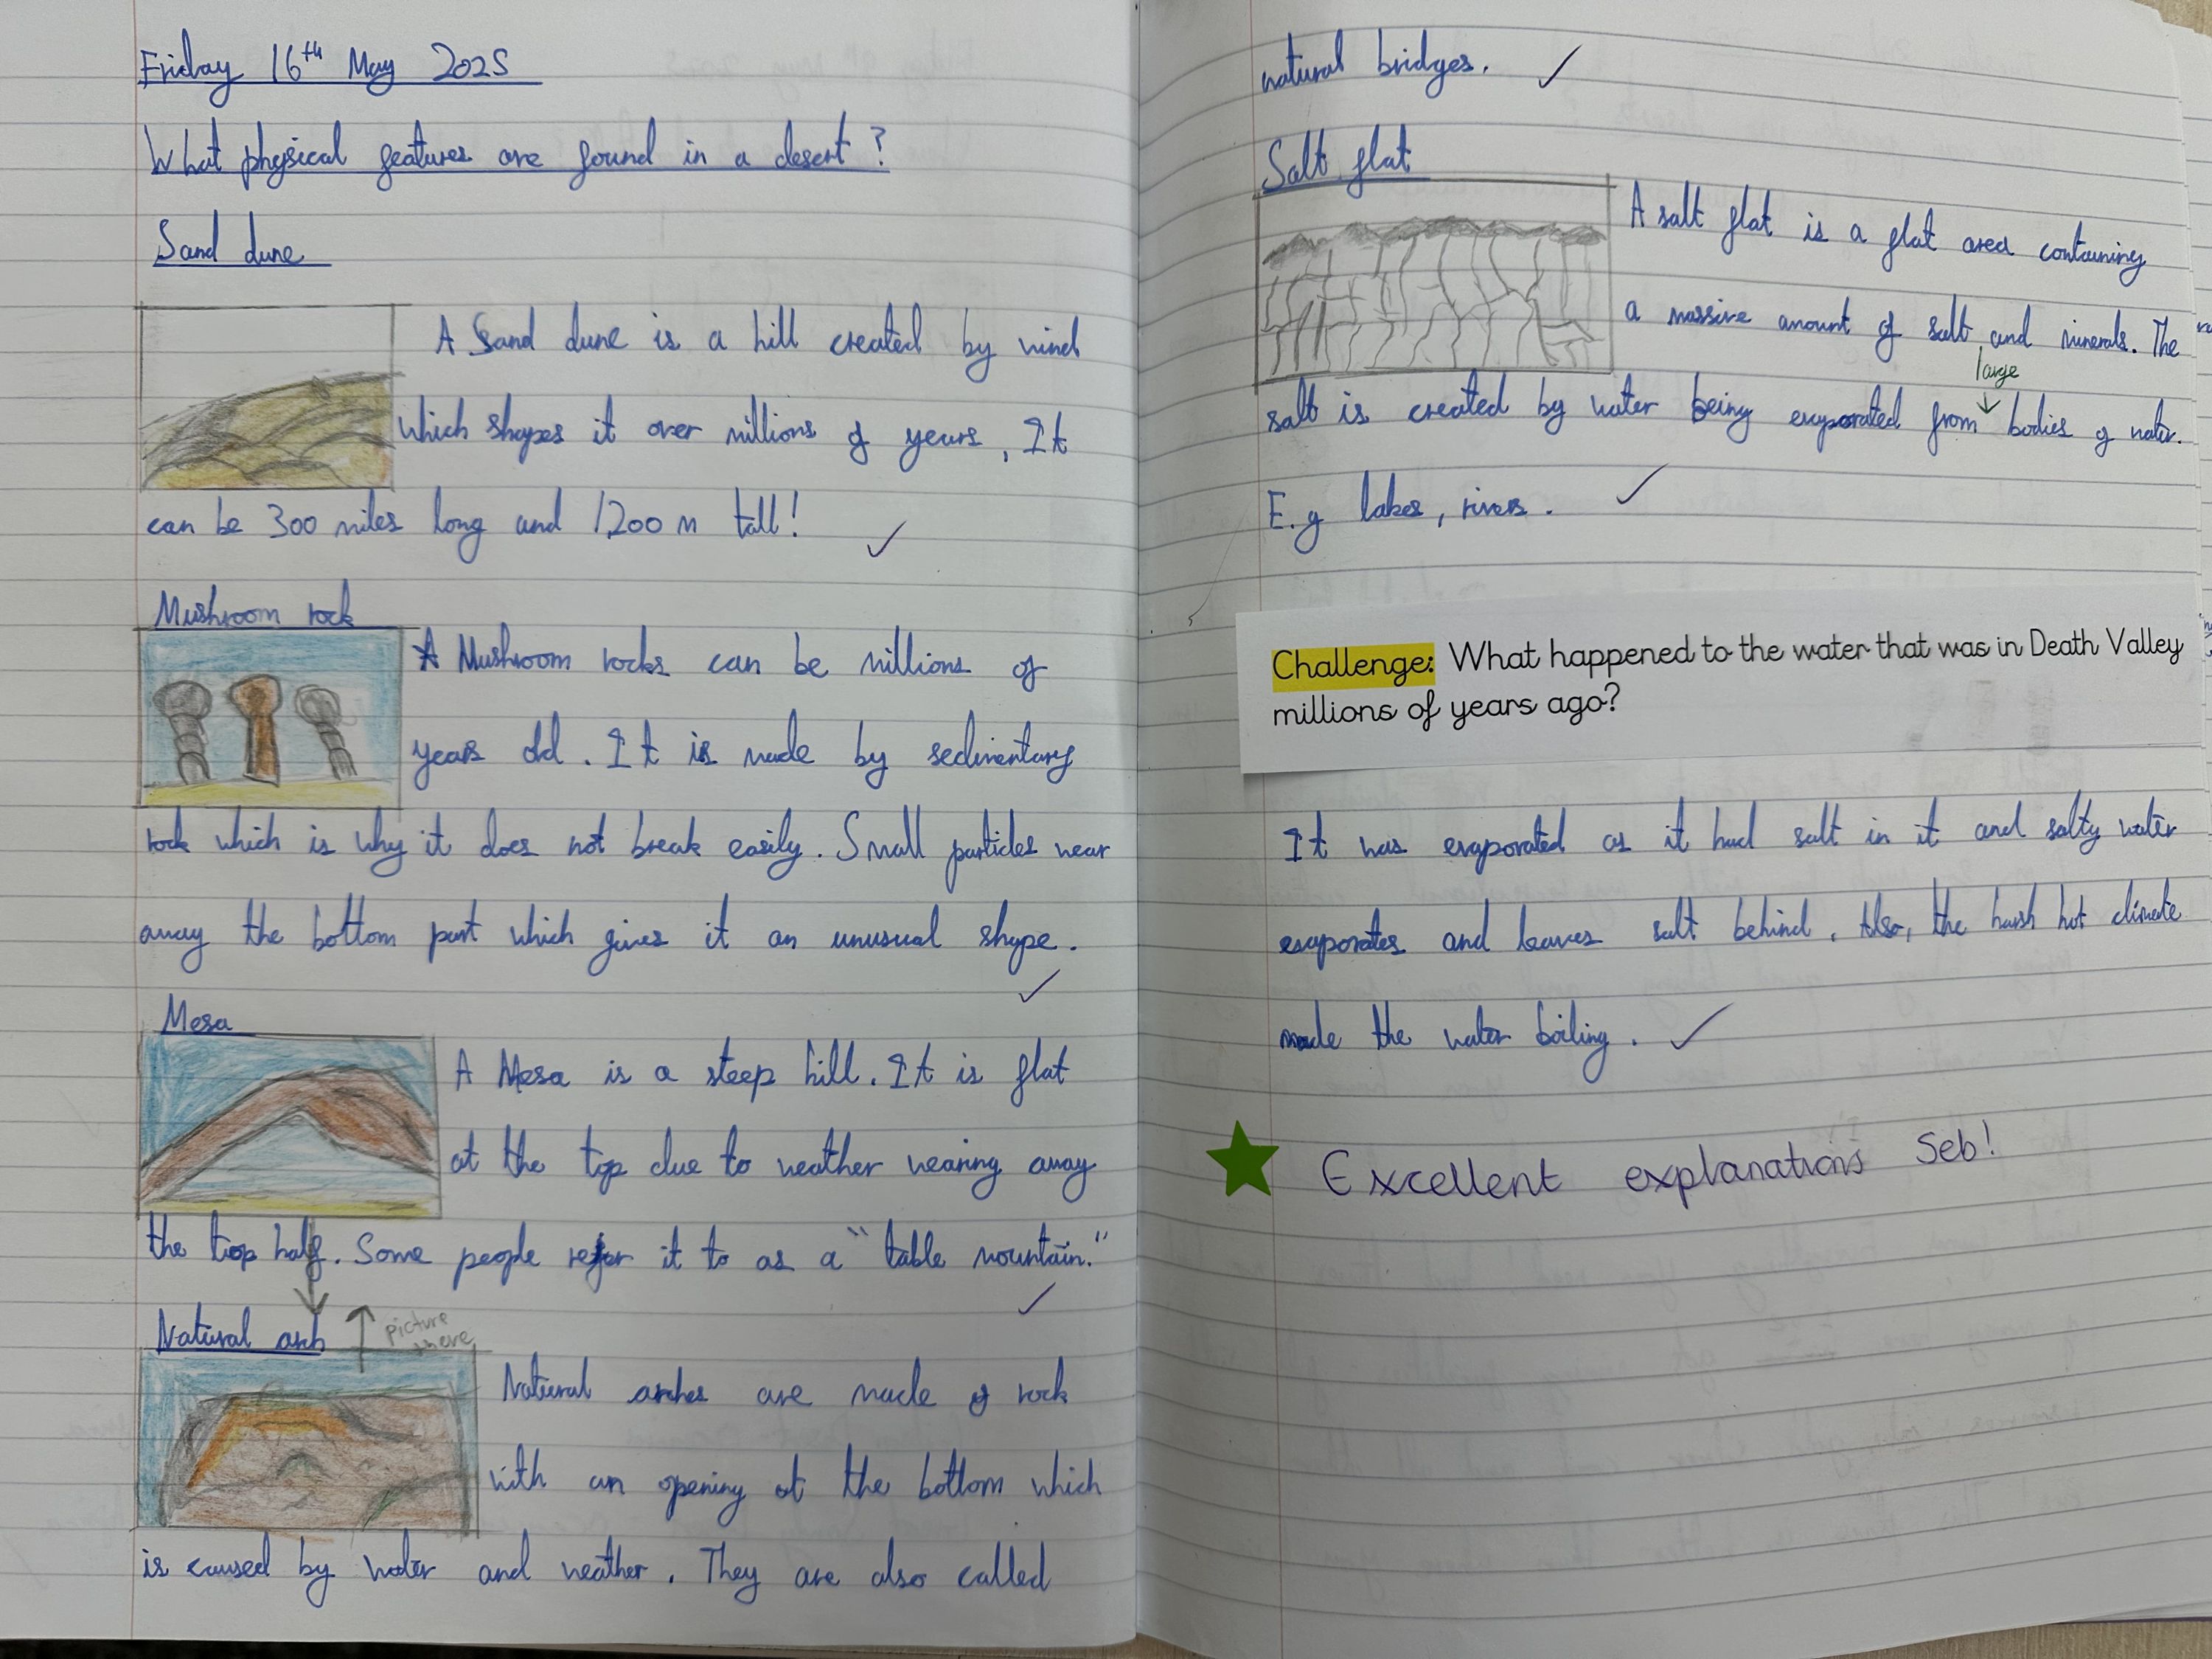 Friday 16th May 2025
What physical features are found in a desert?
Sand dune
A Sand dune is a hill created by wind
which shapes it over millions of years, It
can be 300 miles long and 1,200 m tall!
Mushroom rock
A Mushroom rocks can be millions of
years old. It is made by sedimentary
rock which is why it does not break easily. Small particles wear
away the bottom part which gives it an unusual shape.
Mesa
A Mesa is a steep hill. It is flat
at the top due to weather wearing away
the top half. Some people refer it to as a "table mountain."
Natural arch
picture
Natural arches are made of rock
with an opening at the bottom which
is caused by water and weather. They are also called
natural bridges.
Salt flat
A salt flat is a flat area containing
a massive amount of salt and minerals. The
large
salt is created by water being evaporated from bodies of water.
E.g lakes, rivers.
Challenge: What happened to the water that was in Death Valley
millions of years ago?
It was evaporated as it had salt in it and salty water
evaporates and leaves salt behind. Also, the harsh hot climate
made the water boiling.
Excellent explanations Seb!